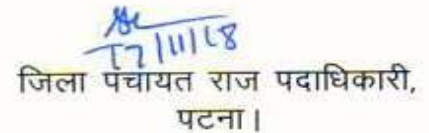 17/11/18
जिला पंचायत राज पदाधिकारी,
पटना।